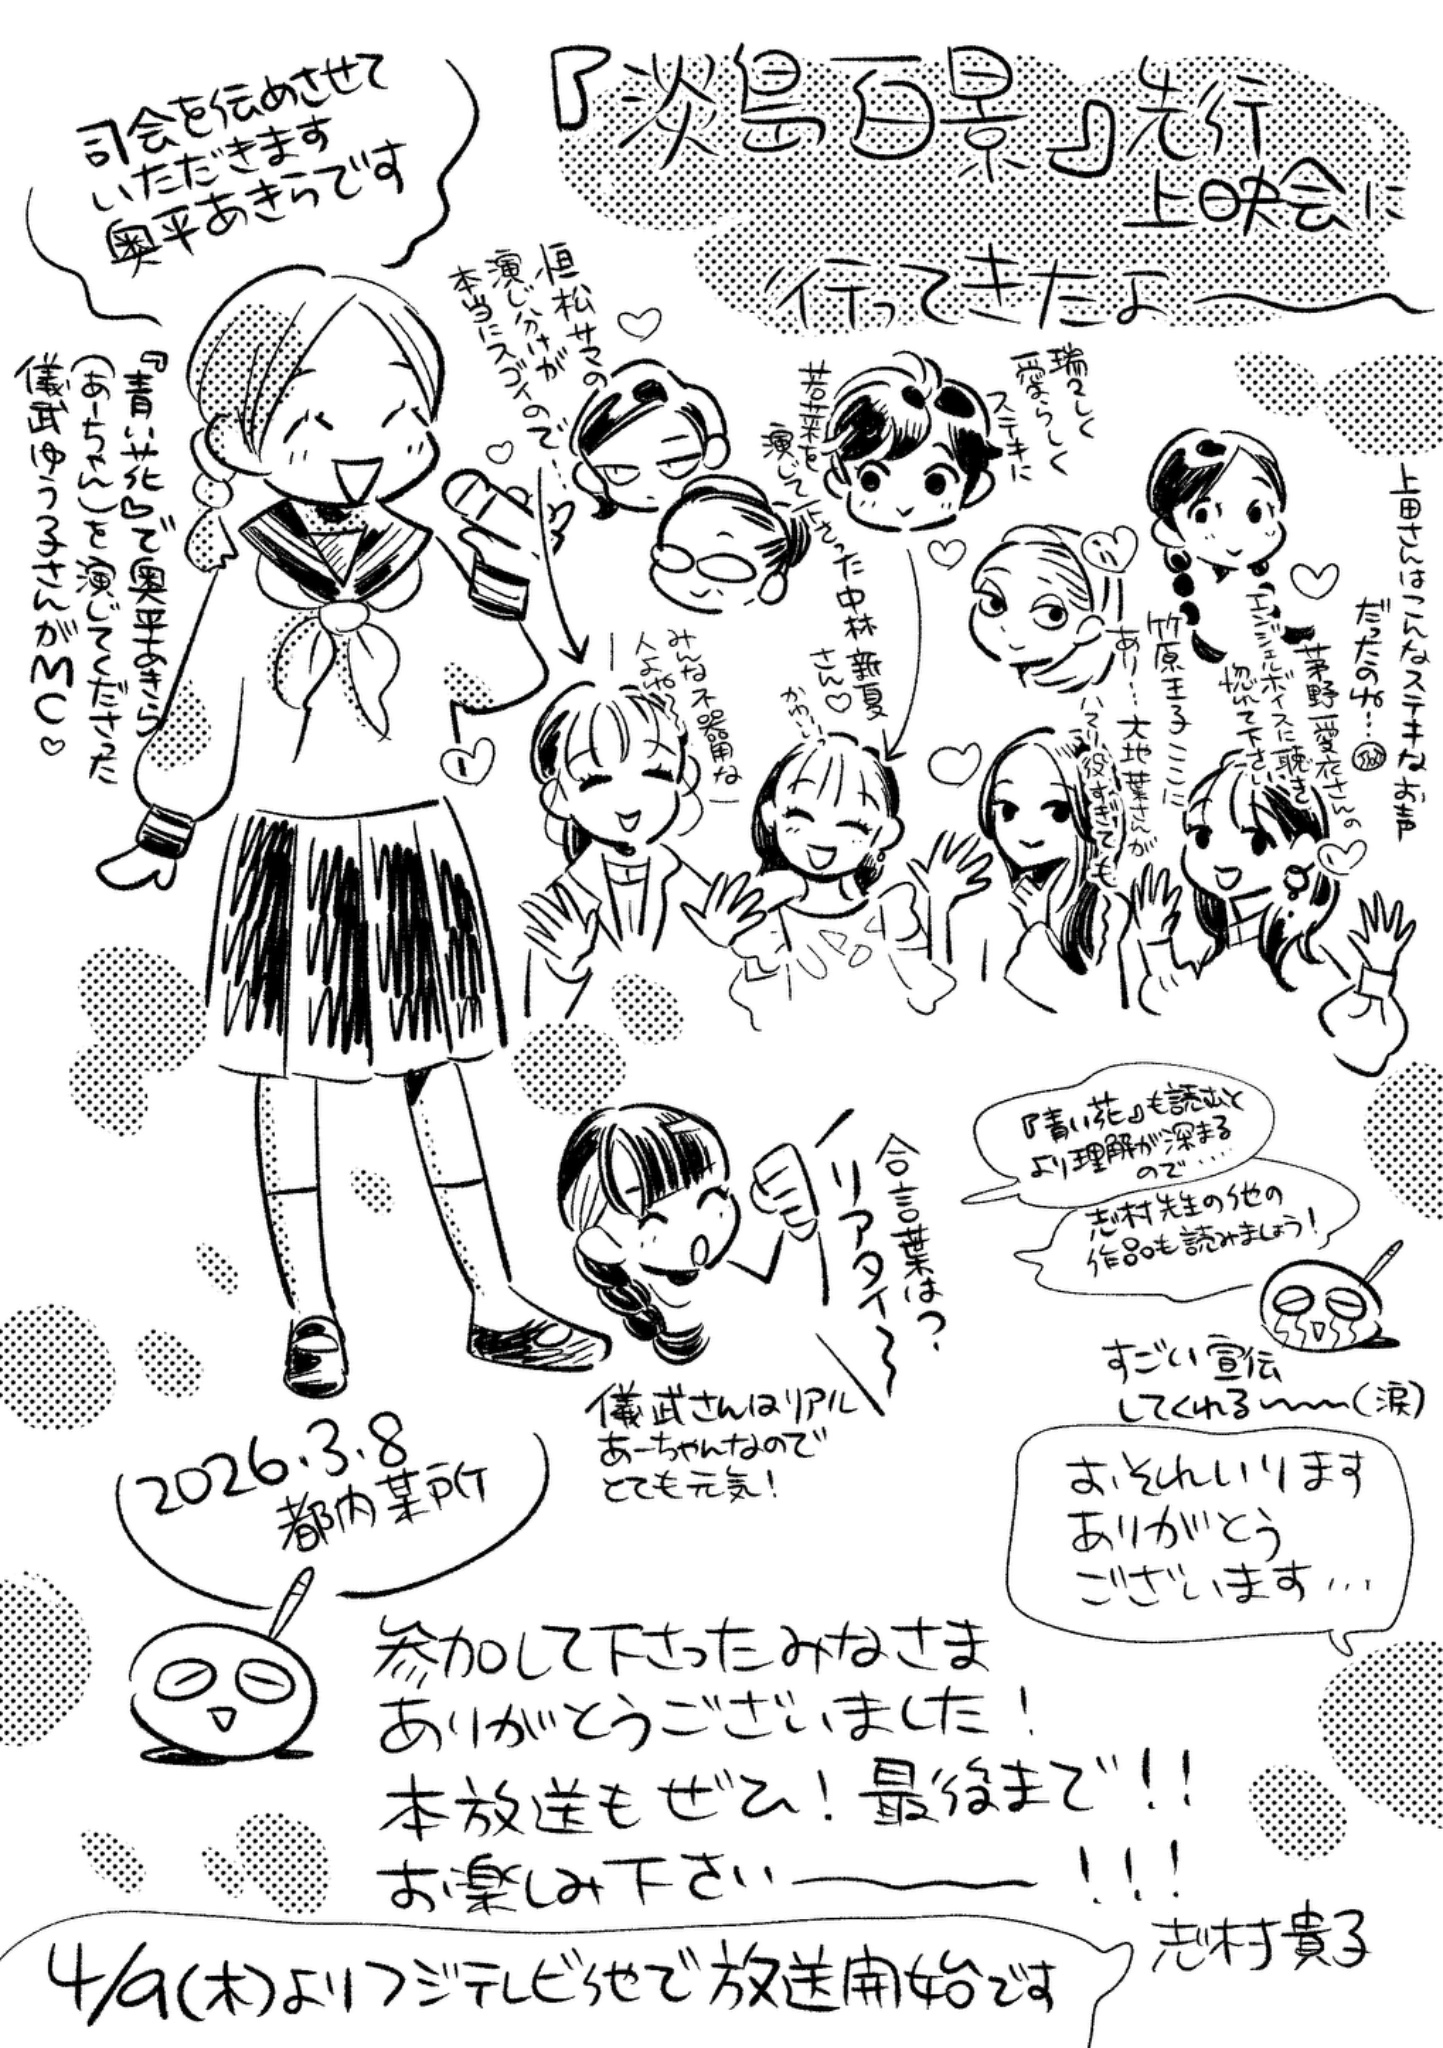 『淡島百景』先行
上映会に
行ってきたよ〜
司会を伝めさせて
いただきます
奥平あきらです
『青い花』で奥平あきら
(あーちゃん)を演じてくださった
儀武ゆう子さんがMC♡
恒松サマの
演じ分けが
本当にスゴイので…
瑞々しく
愛らしく
ステキに
若菜を
演じて下さった中林新夏
さん♡
かわいー
みんな不器用な
人よね〜
竹原王子ここに
あり…大地葉さんが
ハマリ役すぎても
上田さんはこんなステキなお声
だったのね…
茅野愛衣さんの
エンジェルボイスに聴き
惚れて下さい
合言葉は?
リアタイ〜
儀武さんはリアル
あーちゃんなので
とても元気!
『青い花』も読むと
より理解が深まる
ので…
志村先生の他の
作品も読みましょう!
すごい宣伝
してくれる〜(涙)
おそれいります
ありがとう
ございます…
2026.3.8
都内某所
参加して下さったみなさま
ありがとうございました!
本放送もぜひ!最後まで!!
お楽しみ下さい――!!!
志村貴子
4/9(木)よりフジテレビ他で放送開始です